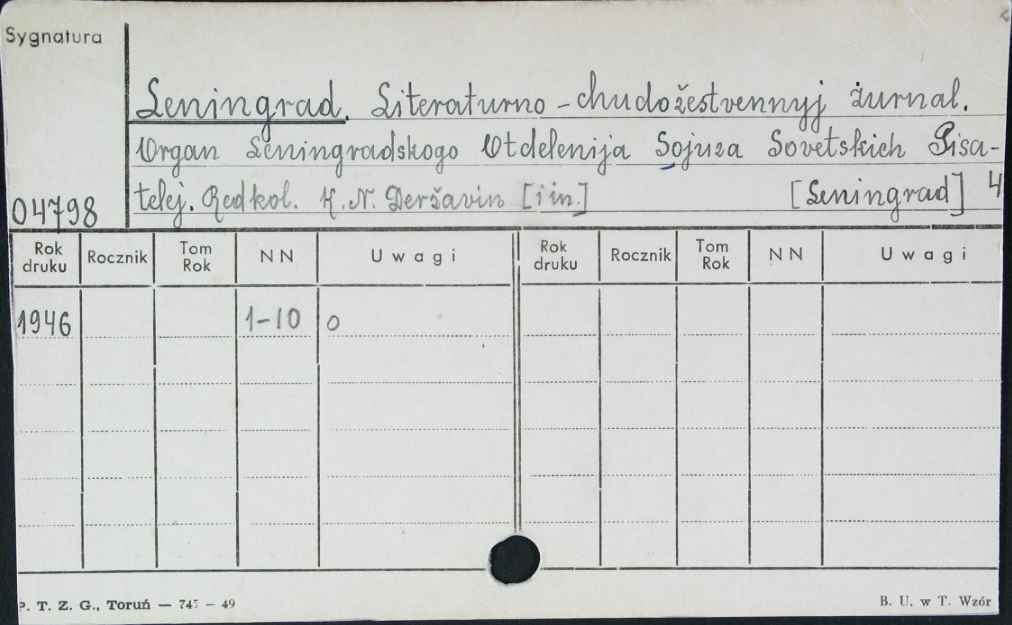 Sygnatura
Leningrad. Literaturno-chudožestvennyj žurnal.
Organ Leningradskogo Otdelenija Sojuza Sovetskich Pisa-
telej. Redkol. K. N. Deržavin [i in.] [Leningrad] 4
04798
Rok druku Rocznik Tom Rok NN Uwagi Rok druku Rocznik Tom Rok NN Uwagi
1946 1-10 o
P. T. Z. G., Toruń — 747 — 49 B. U. w T. Wzór